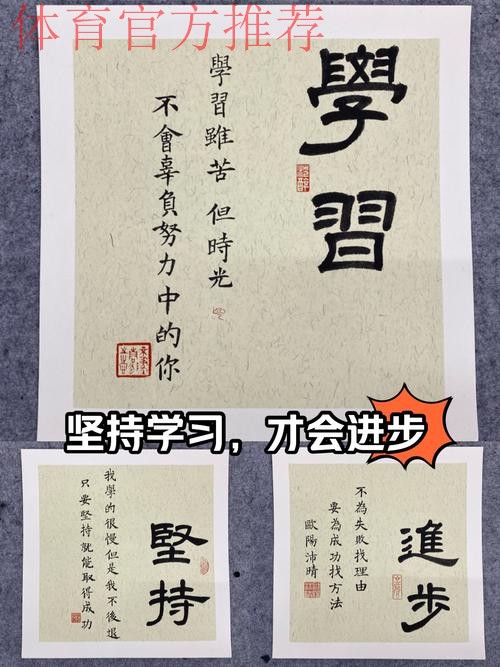 体育官方推荐
學習
學習雖苦 但時光
不會辜負努力中的你
坚持学习，才会进步
堅持
我學的很慢但是我不後退
只要堅持就能取得成功
進步
不為失敗找理由
要為成功找方法
歐陽沛晴